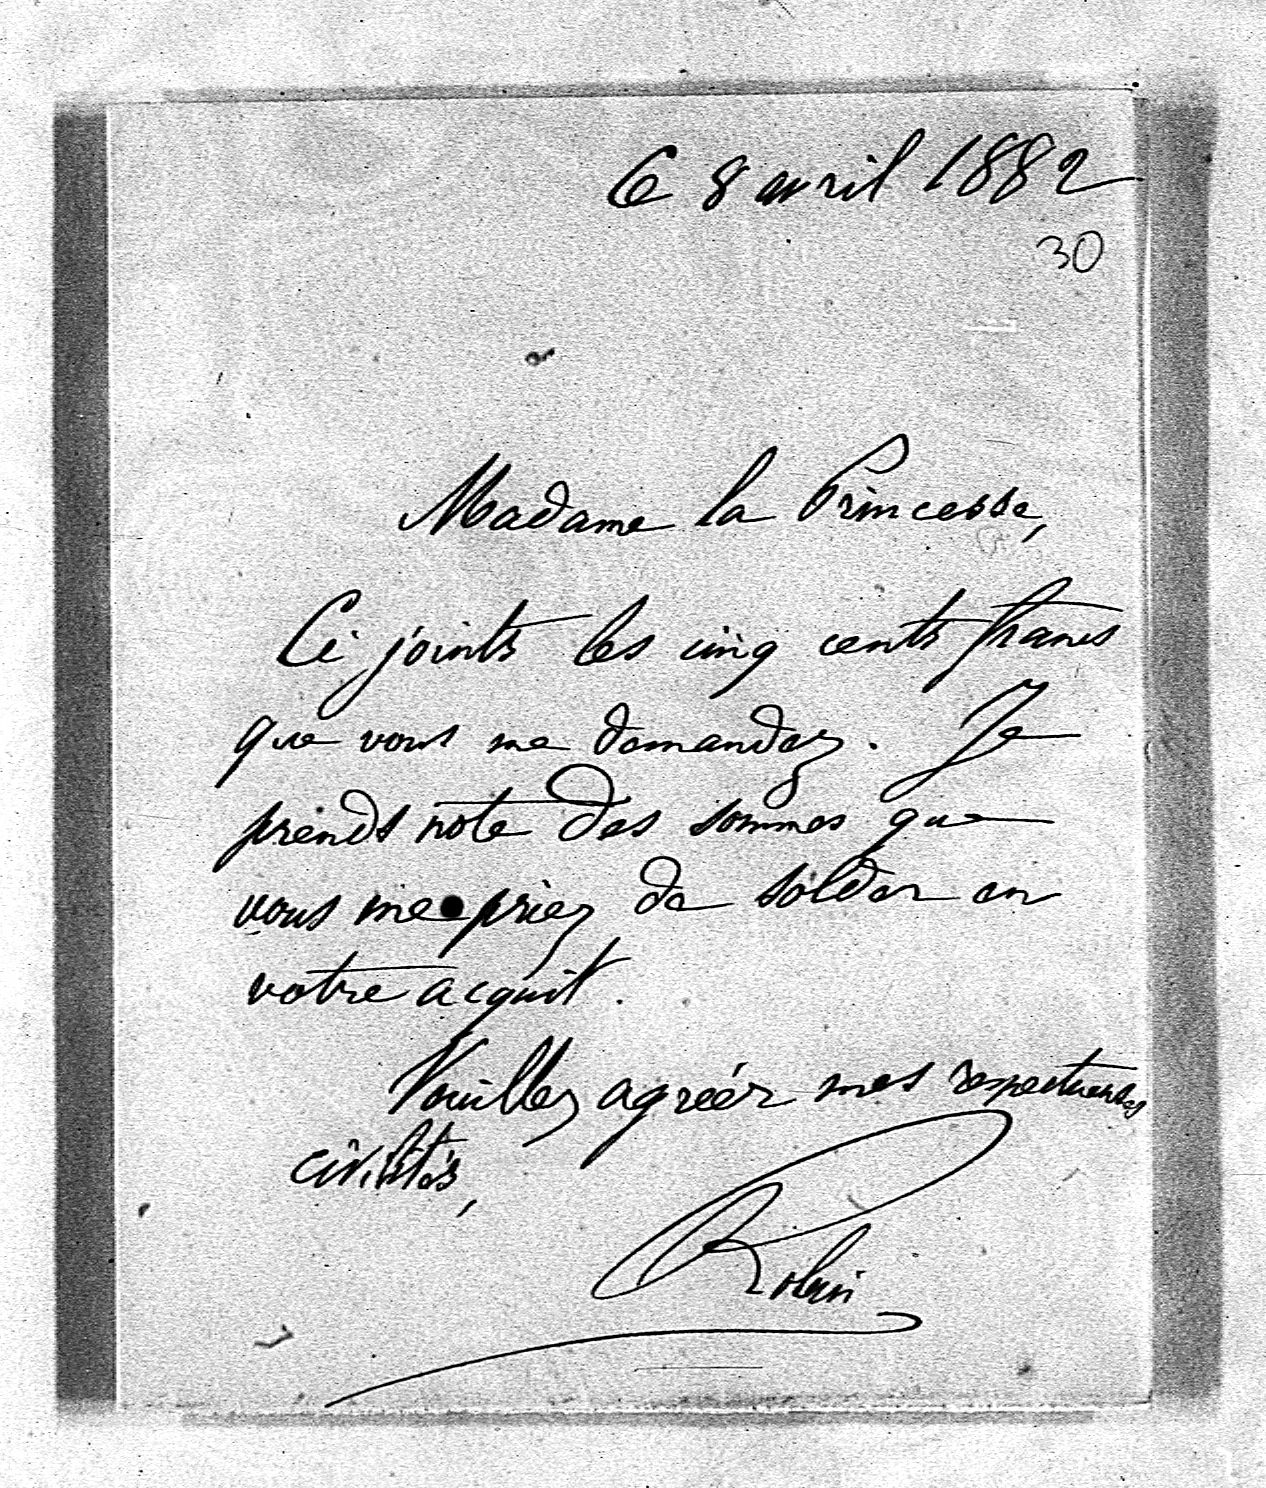 Ce 8 avril 1882
30
Madame la Princesse,
Ci joints les cinq cents francs
que vous me demandez. Je
prends note des sommes que
vous me priez de solder en
votre acquit.
Veuillez agréer mes respectueuses
civilités,
Robin